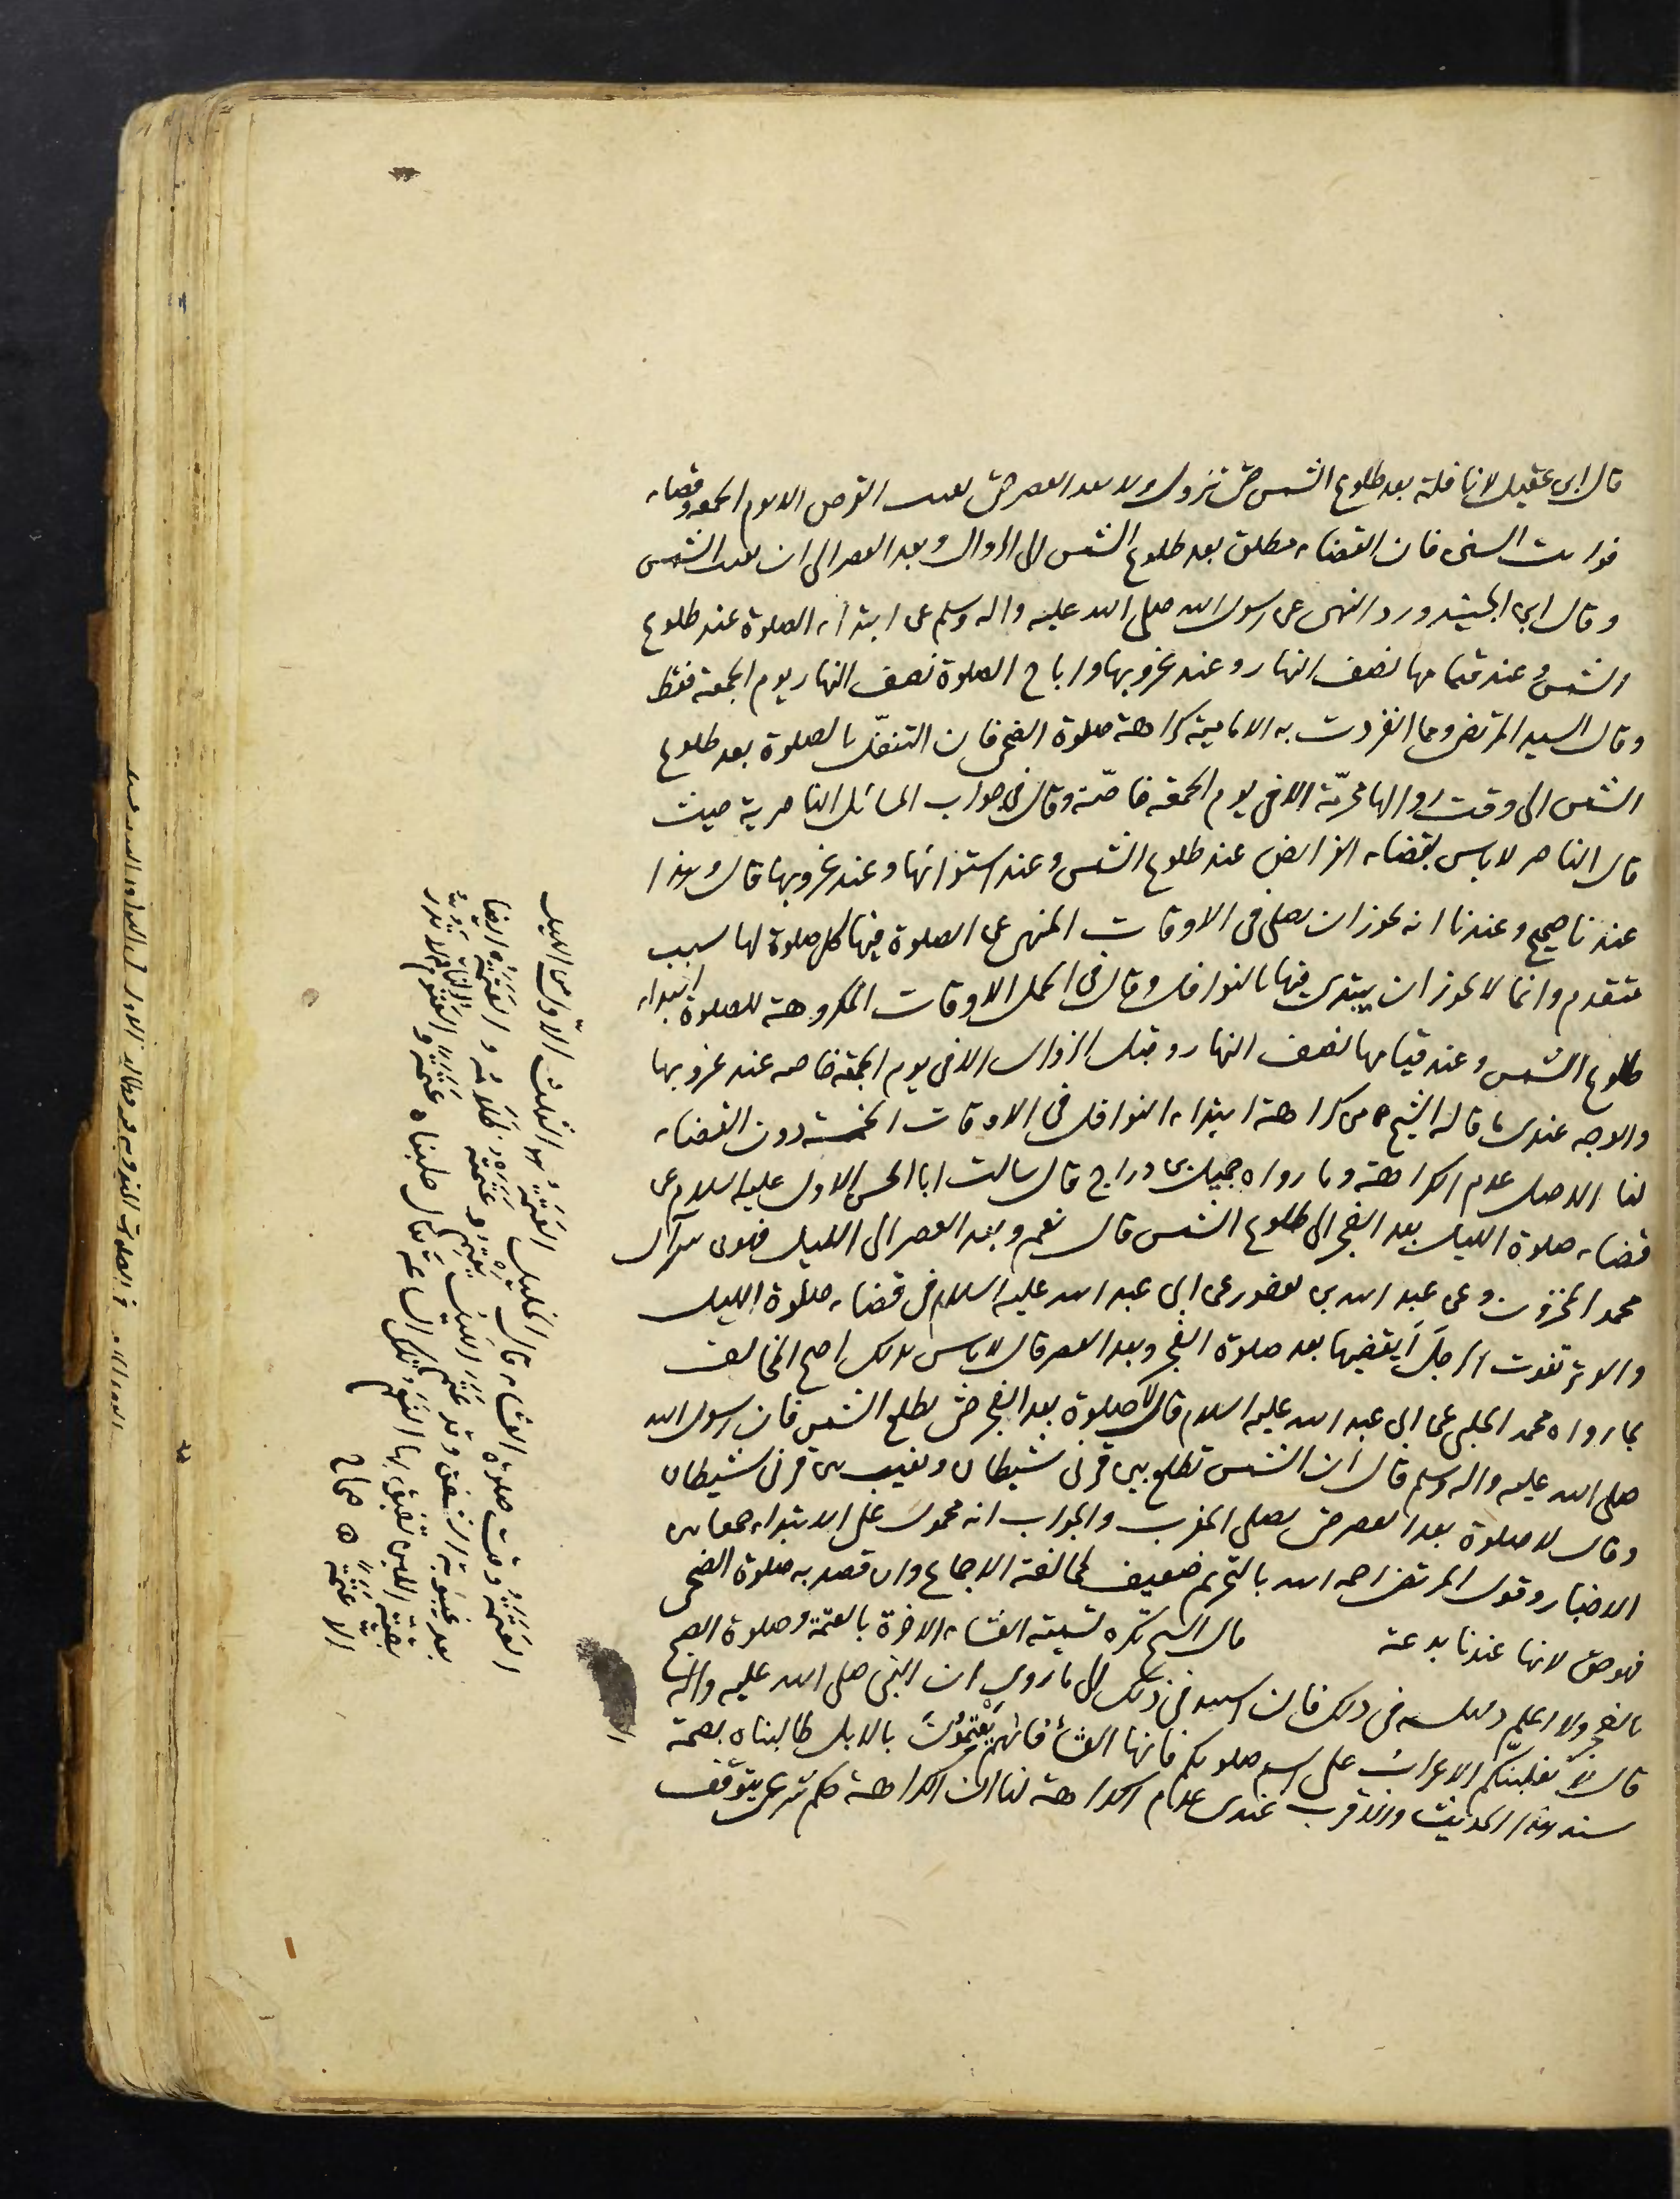 قال ابن عقيل لا نافلة بعد طلوع الشمس حتى تزول ولا بعد العصر حتى يغيب القرص الا يوم الجمعة وقضاء
فوايت السنن فان القضاء مطلق بعد طلوع الشمس الى الزوال وبعد العصر الى ان تغيب الشمس
وقال ابن الجنيد ورد النهي عن رسول الله صلى الله عليه واله وسلم عن ابتداء الصلوة عند طلوع
الشمس وعند قيامها نصف النهار وعند غروبها واباح الصلوة نصف النهار يوم الجمعة فقط
وقال السيد المرتضى ومما انفردت به الامامية كراهة صلوة الضحى فان التنفل بالصلوة بعد طلوع
الشمس الى وقت زوالها محرمة الا في يوم الجمعة خاصة وقال في جواب المسائل الناصرية حيث
قال الناصر لا باس بقضاء الفرايض عند طلوع الشمس وعند استوائها وعند غروبها قال وهذا
عندنا صحيح وعندنا انه يجوز ان يصلى في الاوقات المنهى عن الصلوة فيها كل صلوة لها سبب
متقدم وانما لا يجوز ان يبتدي فيها بالنوافل وقال في الجمل الاوقات المكروهة للصلوة ابتداء
طلوع الشمس وعند قيامها نصف النهار وقبل الزوال الا في يوم الجمعة خاصه عند غروبها
والوجه عندي ما قاله الشيخ من كراهة ابتداء النوافل في الاوقات الخمسة دون القضاء
لنا الاصل عدم الكراهة وما رواه جميل بن دراج قال سالت ابا الحسن الاول عليه السلام عن
قضاء صلوة الليل بعد الفجر الى طلوع الشمس قال نعم وبعد العصر الى الليل فهو من سر آل
محمد المخزون وعن عبد الله بن يعفور عن ابي عبد الله عليه السلام في قضاء صلوة الليل
والوتر تفوت الرجل ايقضيها بعد صلوة الفجر وبعد العصر قال لا باس بذلك احتج المخالف
بما رواه محمد الحلبي عن ابي عبد الله عليه السلام قال لا صلوة بعد الفجر حتى تطلع الشمس فان رسول الله
صلى الله عليه واله وسلم قال ان الشمس تطلع بين قرني شيطان وتغيب بين قرني شيطان
وقال لا صلوة بعد العصر حتى يصلى المغرب والجواب انه محمول على الابتداء جمعا بين
الاخبار وقول المرتضى رحمه الله بالتحريم ضعيف لمخالفة الاجماع وان قصد به صلوة الضحى
فهو حق لانها عندنا بدعة قال الشيخ تكره تسمية العشاء الاخرة بالعتمة وصلوة الصبح
بالفجر ولا اعلم دليله في ذلك فان استند في ذلك الى ما روي ان النبي صلى الله عليه واله
قال لا تغلبنكم الاعراب على اسم صلوتكم فانها العشاء فانهم يعتمون بالابل طالبناه بصحة
سند هذا الحديث والاقرب عندي عدم الكراهة لنا ان الكراهة حكم شرعي يتوقف
العتمة وقت صلوة العشاء قال الخليل العتمة هو الثلث الاول من الليل
بعد غيبوبة الشفق وقد عتم الليل يعتم وعتمته ظلامه والعتمة ايضا
بقية اللبن تفيق بها النعم تلك الساعة يقال حلبنا عتمة
الا عتمة صحاح